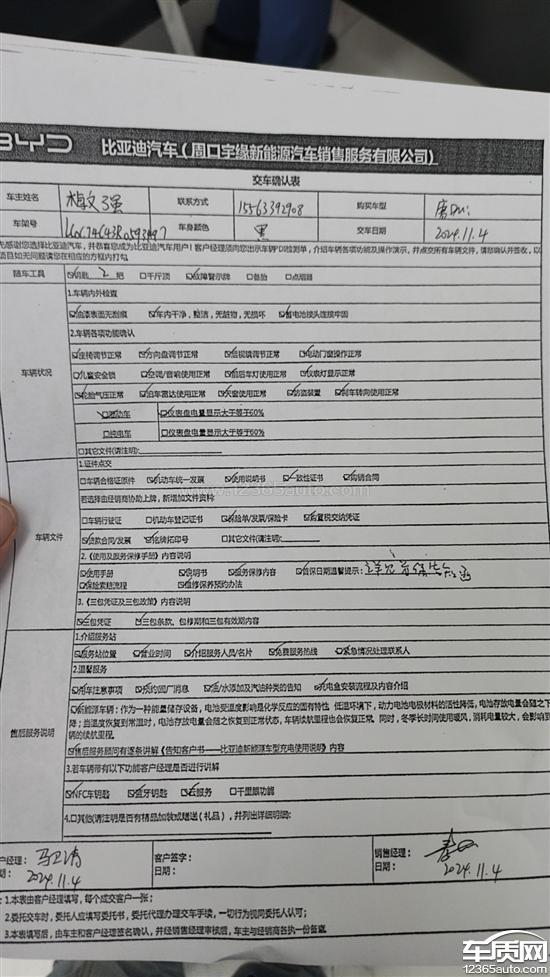 BYD 比亚迪汽车(周口宇缘新能源汽车销售服务有限公司)
交车确认表
车主姓名 联系方式 15563392908 购买车型
车架号 车身颜色 黑 交车日期 2024.11.4
先感谢您选择比亚迪汽车,并恭喜您成为比亚迪汽车用户!客户经理须向您出示车辆PDI检测单,介绍车辆各项功能及操作演示,并点交所有车辆文件,请您确认并签收,以
项目如无问题请您在相应的方框内打勾。
随车工具 ☑钥匙 2 把 □千斤顶 ☑故障警示牌 □备胎 □点烟器
1.车辆内外检查
☑油漆表面无刮痕 ☑车内干净,整洁,无脏物,无损坏 ☑蓄电池接头连接牢固
2.车辆各项功能确认
车辆状况
☑座椅调节正常 ☑方向盘调节正常 ☑后视镜调节正常 ☑电动门窗操作正常
☑儿童安全锁 ☑空调/音响使用正常 ☑前后车灯使用正常 ☑仪表灯显示正常
☑轮胎气压正常 ☑泊车雷达使用正常 ☑天窗使用正常 ☑防盗装置 ☑刹车转向使用正常
☑混动车 ☑仪表盘电量显示大于等于60%
□纯电车 □仪表盘电量显示大于等于60%
□其它文件(请注明):
1.证件点交
□车辆合格证原件 ☑机动车统一发票 ☑使用说明书 ☑一致性证书 ☑购销合同
若选择由经销商协助上牌,新增加文件资料:
□车辆行驶证 □机动车登记证书 ☑保险单/发票/保险卡 ☑购置税交纳凭证
车辆文件
☑贷款合同/发票 ☑名牌拓印号 □其它文件(请注明):
2.《使用及服务保修手册》内容说明
☑使用手册 ☑说明书 ☑服务保修内容 ☑首保日期温馨提示:
☑保险索赔流程 ☑维修保养预约办法
3.《三包凭证及三包政策》内容说明
☑三包凭证 ☑三包条款,包修期和三包有效期内容
1.介绍服务站
☑服务站位置 ☑营业时间 ☑介绍服务人员/名片 ☑免费服务热线 ☑紧急情况处理联系人
2.温馨服务
☑用车注意事项 ☑预约回厂消息 ☑油/水添加及汽油种类的告知 ☑充电盒安装流程及内容介绍
☑新能源车辆:作为一种能量储存设备,电池受温度影响是化学反应的固有特性 低温环境下,动力电池电极材料的活性降低,电池存放电量会随之下
降;当温度恢复到常温时,电池存放电量会随之恢复到正常状态,车辆续航里程也会恢复正常,同时,冬季长时间使用暖风,消耗电量较大,会影响到
辆的续航里程。
售后服务说明
☑售后服务顾问有逐条讲解《告知客户书——比亚迪新能源车型充电使用说明》内容
3.若车辆带有以下功能客户经理是否进行讲解
☑NFC车钥匙 ☑蓝牙钥匙 ☑云服务 □千里眼功能
4.□其他(请注明是否有精品加装或赠送(礼品),并列出详细明细:
户经理: 客户签字: 销售经理:
期: 2024.11.4 日期: 日期: 2024.11.4
:1.本表由客户经理填写,每个成交客户一张;
2.委托交车时,委托人应填写委托书,委托代理办理交车手续,一切行为视同委托人认可;
3.本表填写后,由车主和客户经理签名确认,并经销售经理审核后,车主与经销商各执一份备查。
www.12365auto.com
车质网
12365auto.com